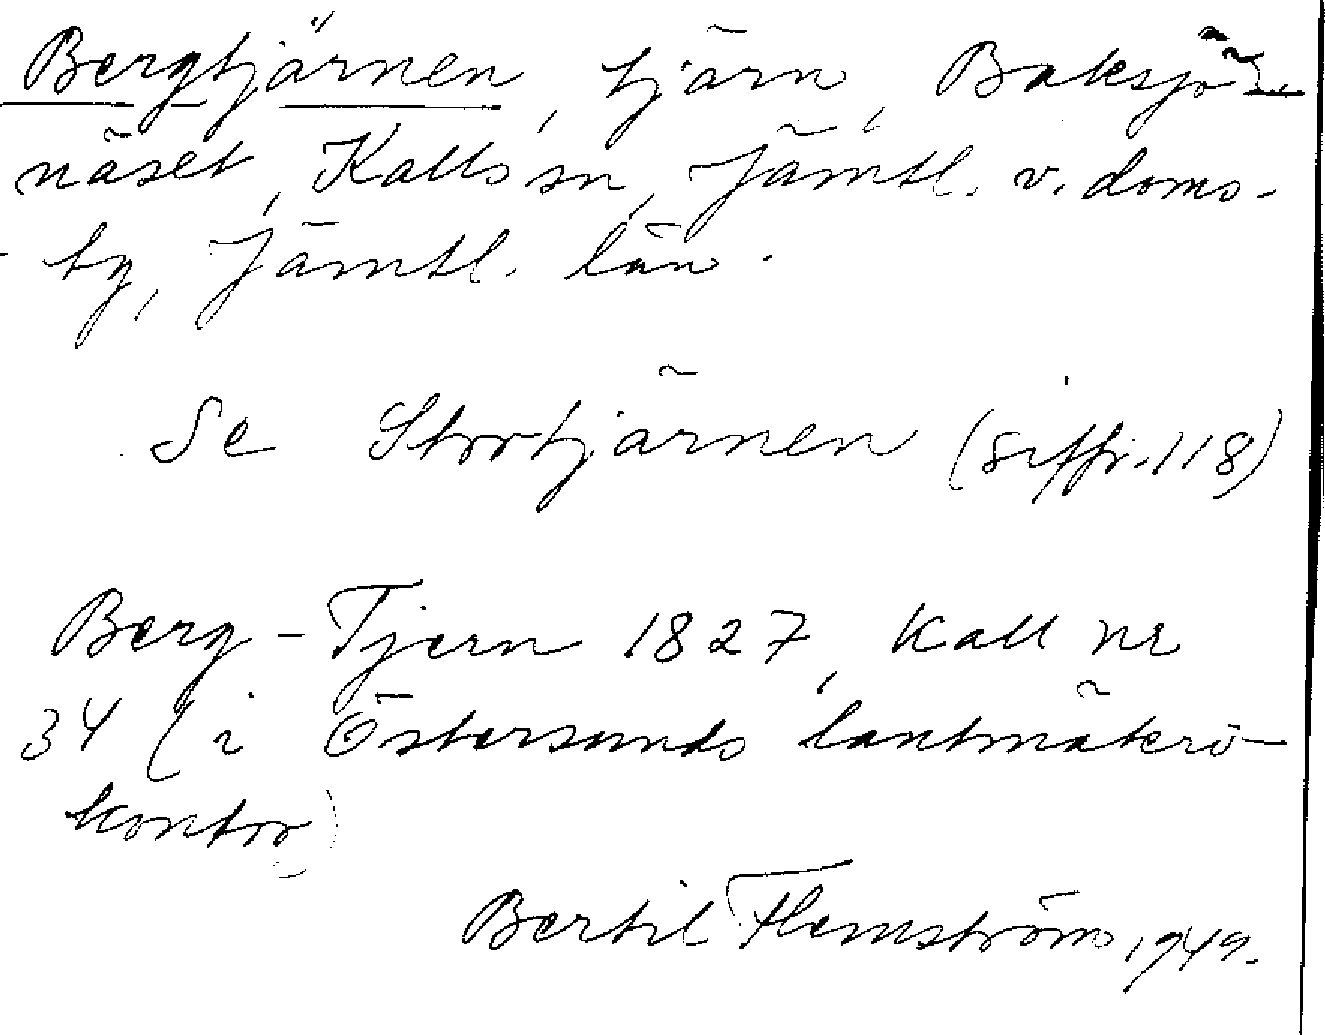 Bergtjärnen, tjärn, Baksjö-
näset, Kalls sn, Jämtl. v. doms-
tg, Jämtl. län.
Se Stortjärnen (siffr. 118)
Berg-Tjern 1827, Kall nr
34 (i Östersunds lantmäteri-
kontor)
Bertil Flemström 1949.